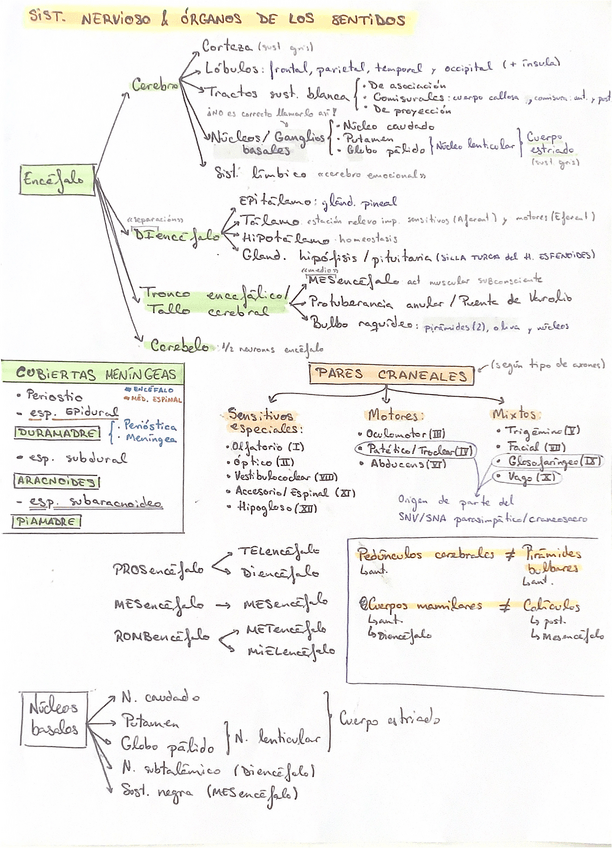 SIST. NERVIOSO & ÓRGANOS DE LOS SENTIDOS
Encéfalo
Cerebro
Corteza (sust gris)
Lóbulos: frontal, parietal, temporal y occipital (+ ínsula)
Tractos sust. blanca
· De asociación
· Comisurales: cuerpo calloso, comisura ant. y post
· De proyección
¿NO es correcto llamarlo así?
Núcleos/Ganglios basales
· Núcleo caudado
· Putamen
· Globo pálido
Núcleo lenticular
Cuerpo estriado
(sust gris)
Sist. límbico «cerebro emocional»
«separación»
DIencéfalo
EPItálamo: glánd. pineal
Tálamo estación relevo imp. sensitivos (Aferent) y motores (Eferent)
HIPOtálamo homeostasis
Gland. hipófisis/pituitaria (SILLA TURCA del H. ESFENOIDES)
Tronco encefálico/
Tallo cerebral
«medio»
MESencéfalo act muscular subconsciente
Protuberancia anular / Puente de Varolio
Bulbo raquídeo: pirámides (2), oliva y núcleos
Cerebelo: 1/2 neuronas encéfalo
CUBIERTAS MENÍNGEAS
· Periostio
ENCÉFALO
MÉD. ESPINAL
- esp. EPIdural
DURAMADRE
· Perióstica
· Meníngea
· esp. subdural
ARACNOIDES
- esp. subaracnoideo
PIAMADRE
PARES CRANEALES
(según tipo de axones)
Sensitivos especiales:
· Olfatorio (I)
· Óptico (II)
· Vestibulococlear (VIII)
· Accesorio/Espinal (XI)
· Hipogloso (XII)
Motores:
· Oculomotor (III)
· Patético/Troclear (IV)
· Abducens (VI)
Mixtos:
· Trigémino (V)
· Facial (VII)
· Glosofaríngeo (IX)
· Vago (X)
Origen de parte del
SNV/SNA parasimpático/craneosacro
PROSencéfalo
TELencéfalo
DIencéfalo
MESencéfalo → MESencéfalo
ROMBencéfalo
METencéfalo
MIELencéfalo
Pedúnculos cerebrales ≠ Pirámides bulbares
↳ ant.
↳ ant.
Cuerpos mamilares ≠ Colículos
↳ ant.
↳ post.
↳ Diencéfalo
↳ Mesencéfalo
Núcleos basales
N. caudado
Putamen
Globo pálido
N. lenticular
Cuerpo estriado
N. subtalámico (Diencéfalo)
Sust. negra (MESencéfalo)